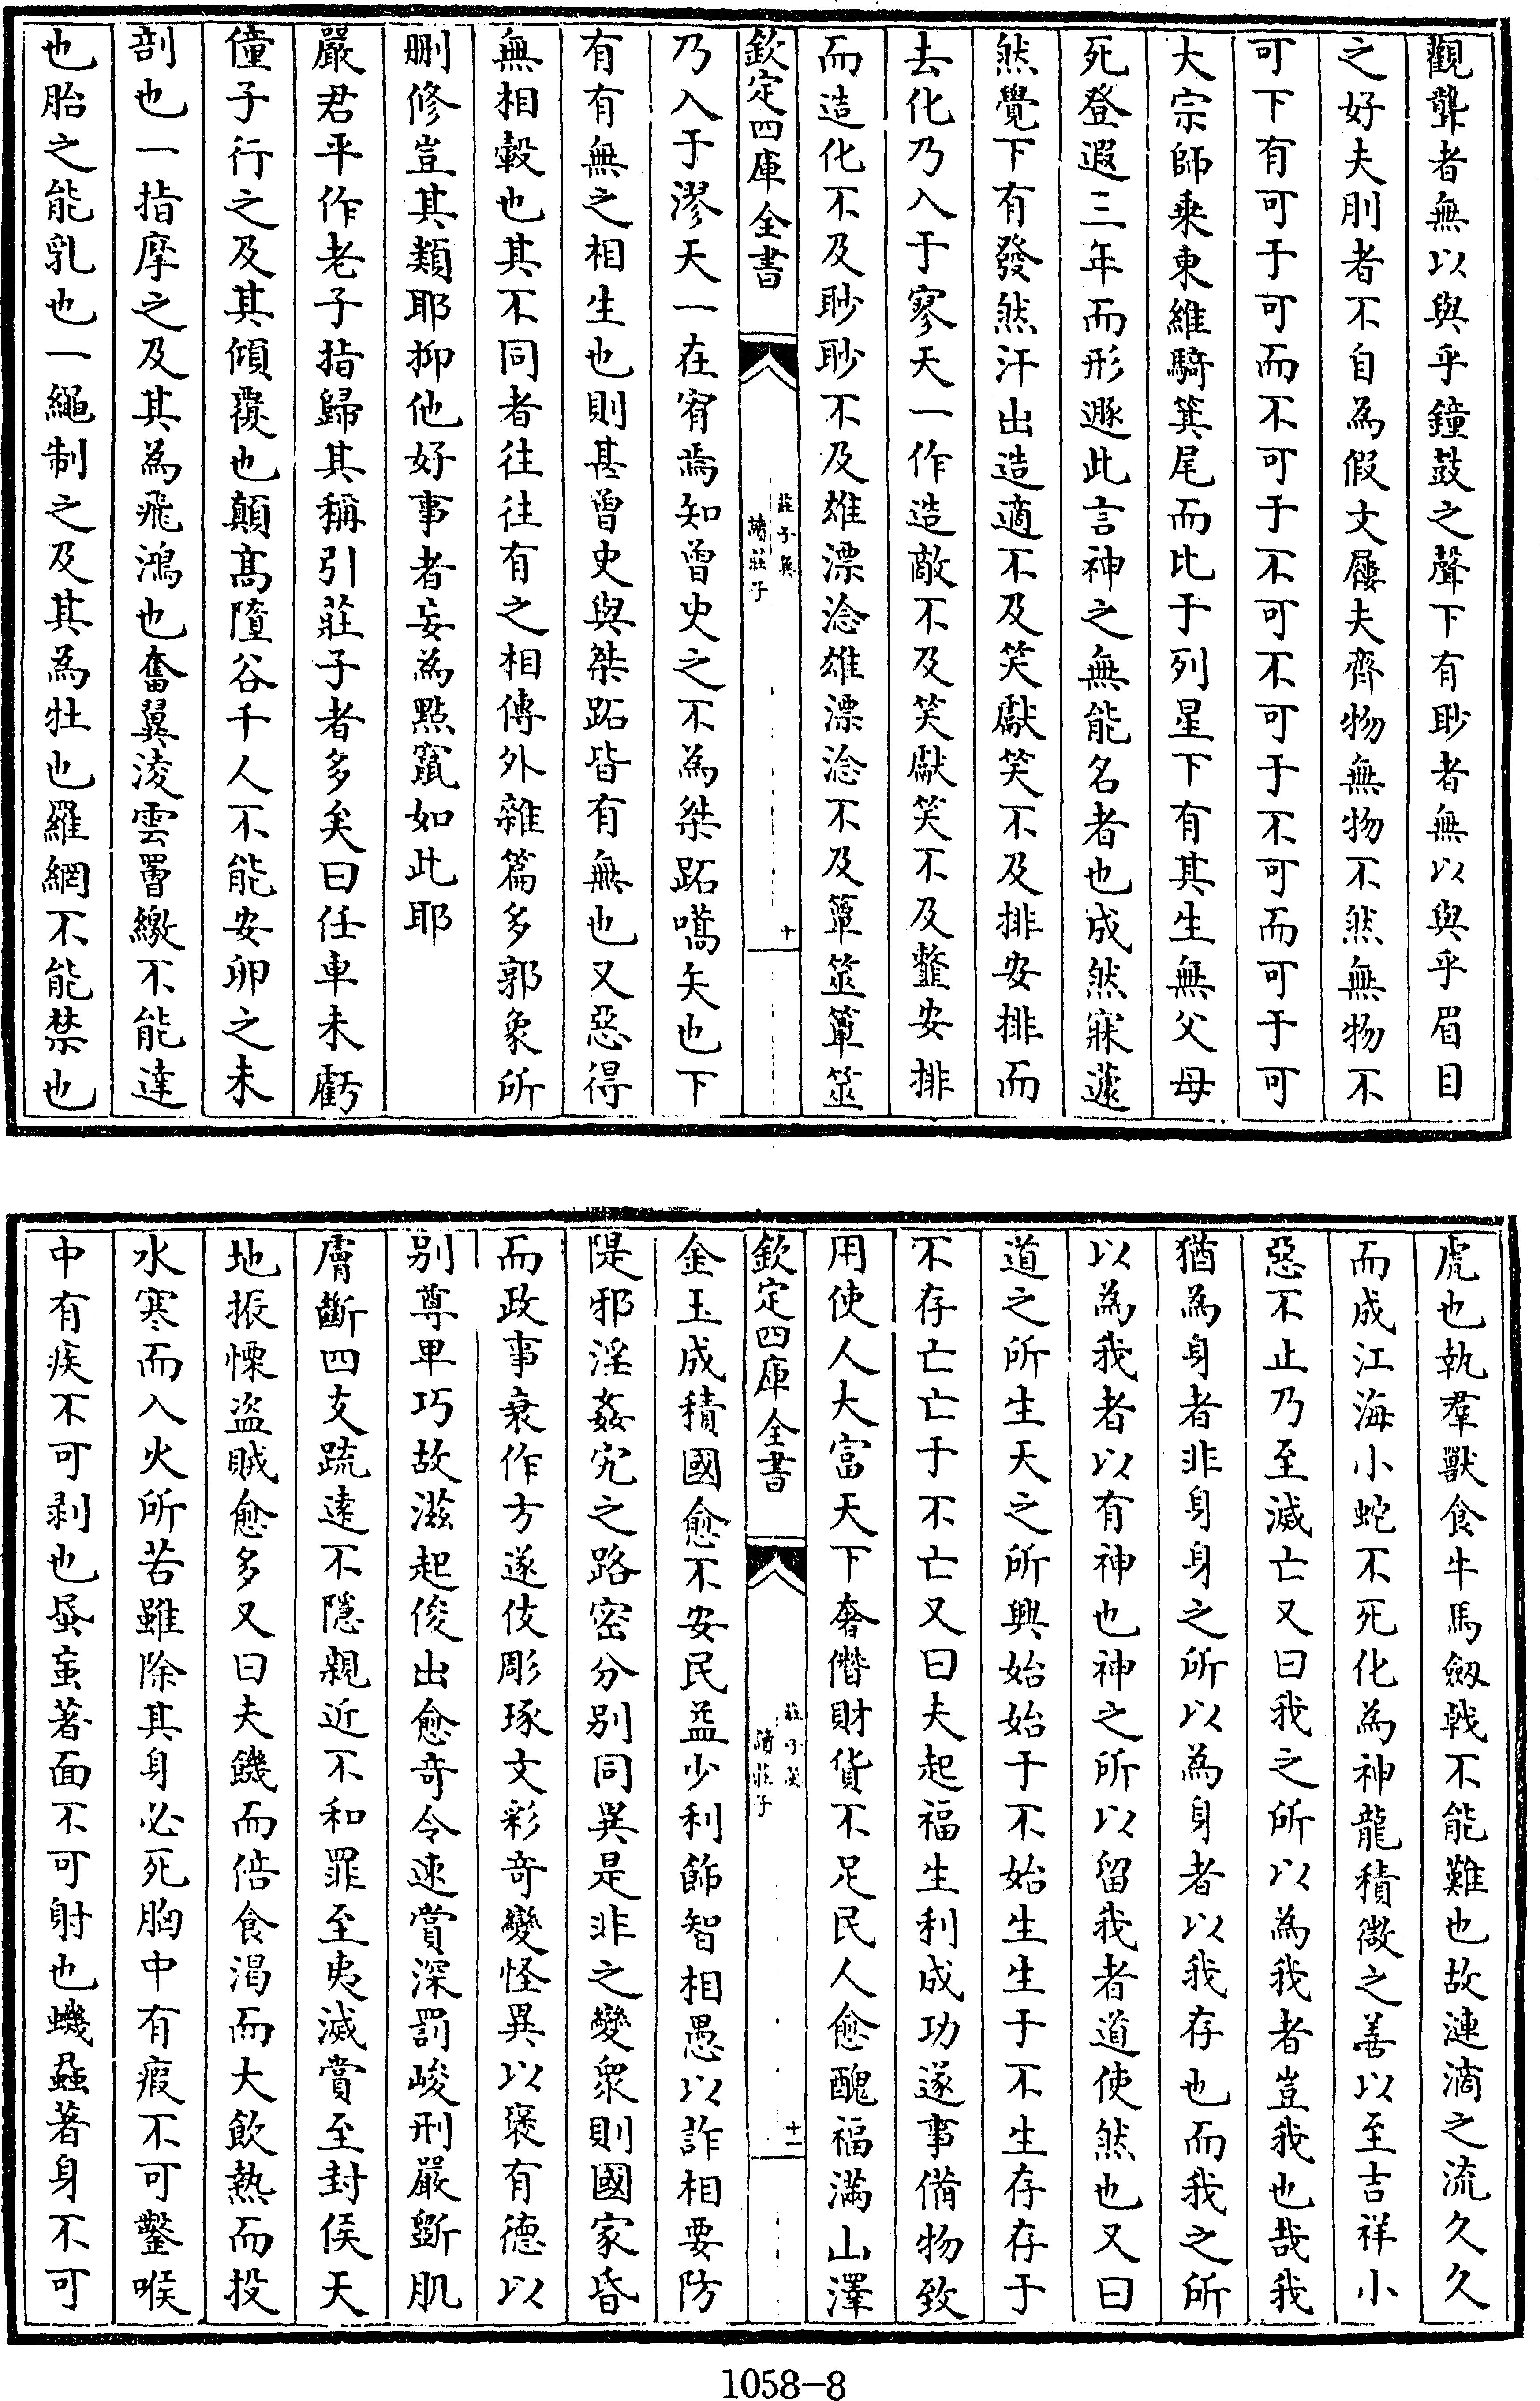 觀聾者無以與乎鐘鼓之聲下有眇者無以與乎眉目
之好夫刖者不自為假文屨夫齊物無物不然無物不
可下有可于可而不可于不可不可于不可而可于可
大宗師乘東維騎箕尾而比于列星下有其生無父母
死登遐三年而形遯此言神之無能名者也成然寐蘧
然覺下有發然汗出造適不及笑獻笑不及排安排而
去化乃入于寥天一作造敵不及笑獻笑不及䪡安排
而造化不及眇眇不及雄漂淰雄漂淰不及簞筮簞筮
欽定四庫全書
莊子翼
讀莊子
十
乃入于漻天一在宥焉知曾史之不為桀跖嚆矢也下
有有無之相生也則甚曾史與桀跖皆有無也又惡得
無相轂也其不同者往往有之相傳外雜篇多郭象所
刪修豈其類耶抑他好事者妄為點竄如此耶
嚴君平作老子指歸其稱引莊子者多矣曰任車未虧
僮子行之及其傾覆也顛高墮谷千人不能安卵之未
剖也一指摩之及其為飛鴻也奮翼淩雲罾繳不能達
也胎之能乳也一繩制之及其為牡也羅網不能禁也
虎也執羣獸食牛馬劔戟不能難也故漣滴之流久久
而成江海小蛇不死化為神龍積微之善以至吉祥小
惡不止乃至滅亡又曰我之所以為我者豈我也哉我
猶為身者非身身之所以為身者以我存也而我之所
以為我者以有神也神之所以留我者道使然也又曰
道之所生天之所興始始于不始生生于不生存存于
不存亡亡于不亡又曰夫起福生利成功遂事備物致
用使人大富天下奢僭財貨不足民人愈醜福滿山澤
欽定四庫全書
莊子翼
讀莊子
十一
金玉成積國愈不安民益少利飾智相愚以詐相要防
隄邪淫姦宄之路密分别同異是非之變衆則國家昏
而政事衰作方遂伎彫琢文彩奇變怪異以褒有德以
别尊卑巧故滋起俊出愈奇令速賞深罰峻刑嚴斵肌
膚斷四支疏遠不隱親近不和罪至夷滅賞至封侯天
地振慄盗賊愈多又曰夫饑而倍食渴而大飲熱而投
水寒而入火所苦雖除其身必死胸中有瘕不可鑿喉
中有疾不可剥也蚤䖟著面不可射也蟣蝨著身不可
1058-8